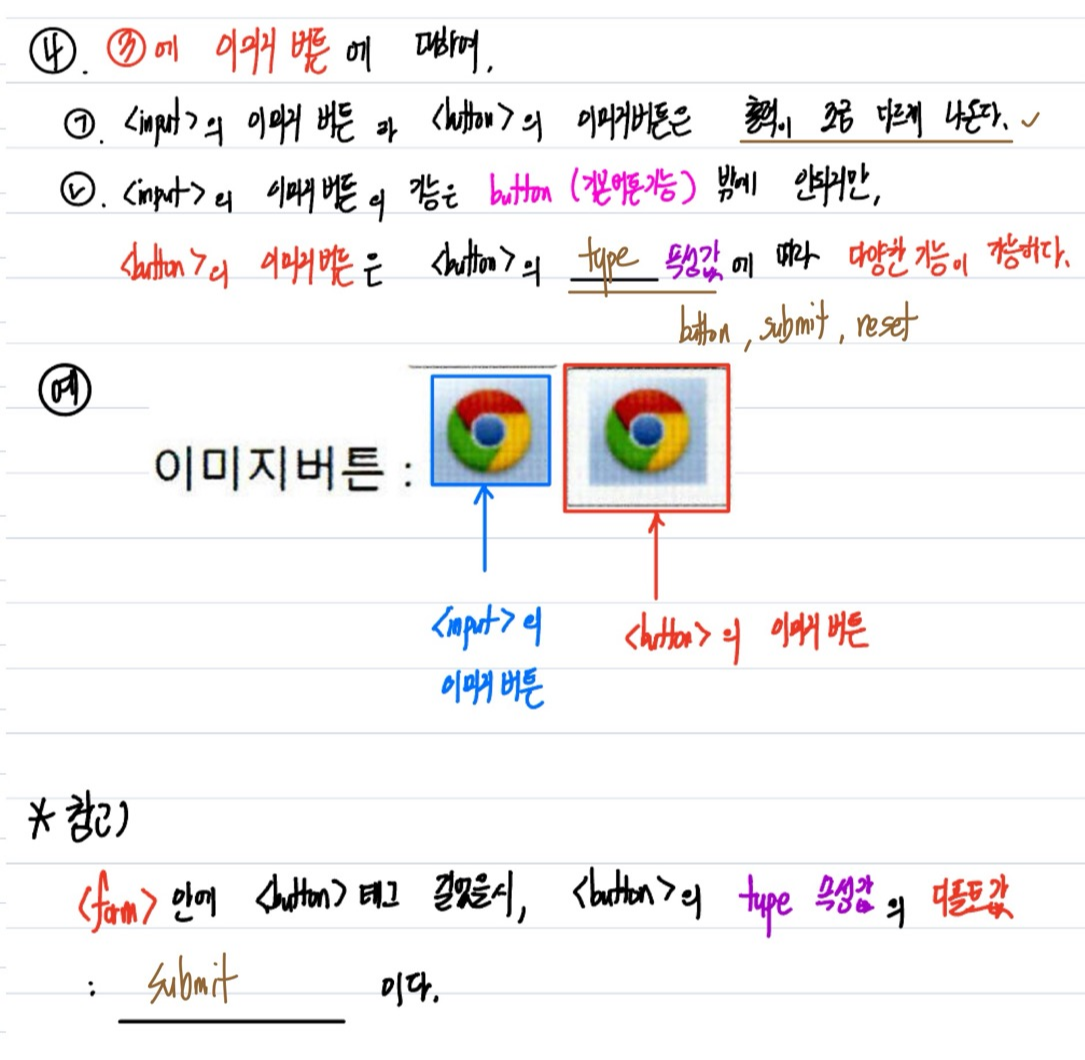 ④. ③에 이미지 버튼에 대하여.
㉠. <input>의 이미지 버튼과 <button>의 이미지버튼은 출력이 조금 다르게 나온다. ✓
㉡. <input>의 이미지 버튼의 기능은 button (기본버튼기능) 밖에 안되지만,
<button>의 이미지버튼은 <button>의 type 속성값에 따라 다양한 기능이 가능하다.
button, submit, reset
예
이미지버튼 :
<input>의
이미지 버튼
<button>의 이미지 버튼
* 참고)
<form> 안에 <button> 태그 있을시, <button>의 type 속성값의 디폴트값
: submit 이다.